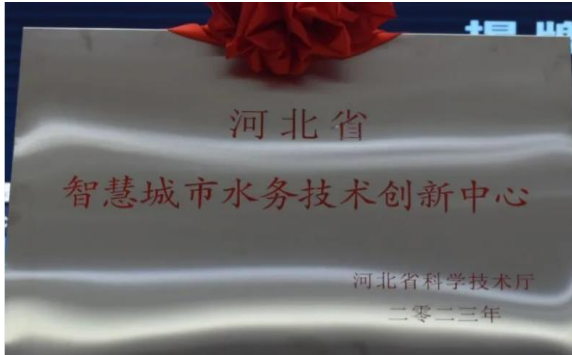 河北省
智慧城市水务技术创新中心
河北省科学技术厅
二零二三年